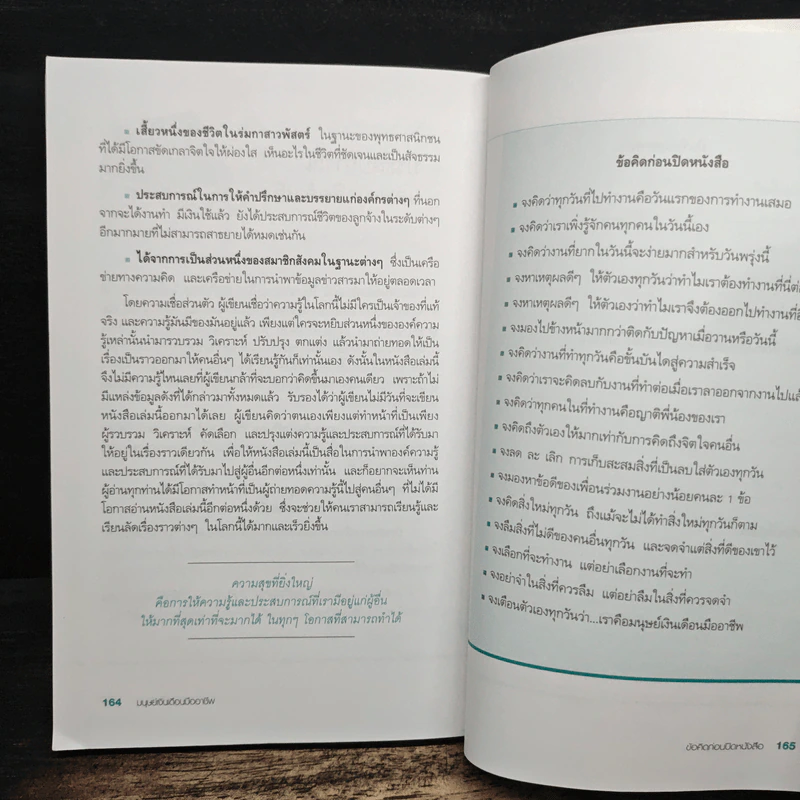 ▪ เสี้ยวหนึ่งของชีวิตในร่มกาสาวพัสตร์ ในฐานะของพุทธศาสนิกชน
ที่ได้มีโอกาสขัดเกลาจิตใจให้ผ่องใส เห็นอะไรในชีวิตที่ชัดเจนและเป็นสัจธรรม
มากยิ่งขึ้น
▪ ประสบการณ์ในการให้คำปรึกษาและบรรยายแก่องค์กรต่างๆ ที่นอก
จากจะได้งานทำ มีเงินใช้แล้ว ยังได้ประสบการณ์ชีวิตของลูกจ้างในระดับต่างๆ
อีกมากมายที่ไม่สามารถสาธยายได้หมดเช่นกัน
▪ ได้จากการเป็นส่วนหนึ่งของสมาชิกสังคมในฐานะต่างๆ ซึ่งเป็นเครือ
ข่ายทางความคิด และเครือข่ายในการนำพาข้อมูลข่าวสารมาให้อยู่ตลอดเวลา
โดยความเชื่อส่วนตัว ผู้เขียนเชื่อว่าความรู้ในโลกนี้ไม่มีใครเป็นเจ้าของที่แท้
จริง และความรู้มันมีของมันอยู่แล้ว เพียงแต่ใครจะหยิบส่วนหนึ่งขององค์ความ
รู้เหล่านั้นมารวบรวม วิเคราะห์ ปรับปรุง ตกแต่ง แล้วนำมาถ่ายทอดให้เป็น
เรื่องเป็นราวออกมาให้คนอื่นๆ ได้เรียนรู้กันก็เท่านั้นเอง ดังนั้นในหนังสือเล่มนี้
จึงไม่มีความรู้ไหนเลยที่ผู้เขียนกล้าที่จะบอกว่าคิดขึ้นมาเองคนเดียว เพราะถ้าไม่
มีแหล่งข้อมูลดังที่ได้กล่าวมาทั้งหมดแล้ว รับรองได้ว่าผู้เขียนไม่มีวันที่จะเขียน
หนังสือเล่มนี้ออกมาได้เลย ผู้เขียนคิดว่าตนเองเพียงแต่ทำหน้าที่เป็นเพียง
ผู้รวบรวม วิเคราะห์ คัดเลือก และปรุงแต่งความรู้และประสบการณ์ที่ได้รับมา
ให้อยู่ในเรื่องราวเดียวกัน เพื่อให้หนังสือเล่มนี้เป็นสื่อในการนำพาองค์ความรู้
และประสบการณ์ที่ได้รับมาไปสู่ผู้อื่นอีกต่อหนึ่งเท่านั้น และก็อยากจะเห็นท่าน
ผู้อ่านทุกท่านได้มีโอกาสทำหน้าที่เป็นผู้ถ่ายทอดความรู้นี้ไปสู่คนอื่นๆ ที่ไม่ได้มี
โอกาสอ่านหนังสือเล่มนี้อีกต่อหนึ่งด้วย ซึ่งจะช่วยให้คนเราสามารถเรียนรู้และ
เรียนลัดเรื่องราวต่างๆ ในโลกนี้ได้มากและเร็วยิ่งขึ้น
ความสุขที่ยิ่งใหญ่
คือการให้ความรู้และประสบการณ์ที่เรามีอยู่แก่ผู้อื่น
ให้มากที่สุดเท่าที่จะมากได้ ในทุกๆ โอกาสที่สามารถทำได้
164 มนุษย์เงินเดือนมืออาชีพ
ข้อคิดก่อนปิดหนังสือ
▪ จงคิดว่าทุกวันที่ไปทำงานคือวันแรกของการทำงานเสมอ
▪ จงคิดว่าเราเพิ่งรู้จักคนทุกคนในวันนี้เอง
▪ จงคิดว่างานที่ยากในวันนี้จะง่ายมากสำหรับวันพรุ่งนี้
▪ จงหาเหตุผลดีๆ ให้ตัวเองทุกวันว่าทำไมเราต้องทำงานที่นี่ต่อ
▪ จงหาเหตุผลดีๆ ให้ตัวเองว่าทำไมเราจึงต้องออกไปทำงานที่
▪ จงมองไปข้างหน้ามากกว่าติดกับปัญหาเมื่อวานหรือวันนี้
▪ จงคิดว่างานที่ทำทุกวันคือขั้นบันไดสู่ความสำเร็จ
▪ จงคิดว่าเราจะคิดลบกับงานที่ทำต่อเมื่อเราลาออกจากงานไปแล้
▪ จงคิดว่าทุกคนในที่ทำงานคือญาติพี่น้องของเรา
▪ จงคิดถึงตัวเองให้มากเท่ากับการคิดถึงจิตใจคนอื่น
▪ จงลด ละ เลิก การเก็บสะสมสิ่งที่เป็นลบใส่ตัวเองทุกวัน
▪ จงมองหาข้อดีของเพื่อนร่วมงานอย่างน้อยคนละ 1 ข้อ
▪ จงคิดสิ่งใหม่ทุกวัน ถึงแม้จะไม่ได้ทำสิ่งใหม่ทุกวันก็ตาม
▪ จงลืมสิ่งที่ไม่ดีของคนอื่นทุกวัน และจดจำแต่สิ่งที่ดีของเขาไว้
▪ จงเลือกที่จะทำงาน แต่อย่าเลือกงานที่จะทำ
▪ จงอย่าจำในสิ่งที่ควรลืม แต่อย่าลืมในสิ่งที่ควรจดจำ
▪ จงเตือนตัวเองทุกวันว่า...เราคือมนุษย์เงินเดือนมืออาชีพ
ข้อคิดก่อนปิดหนังสือ 165